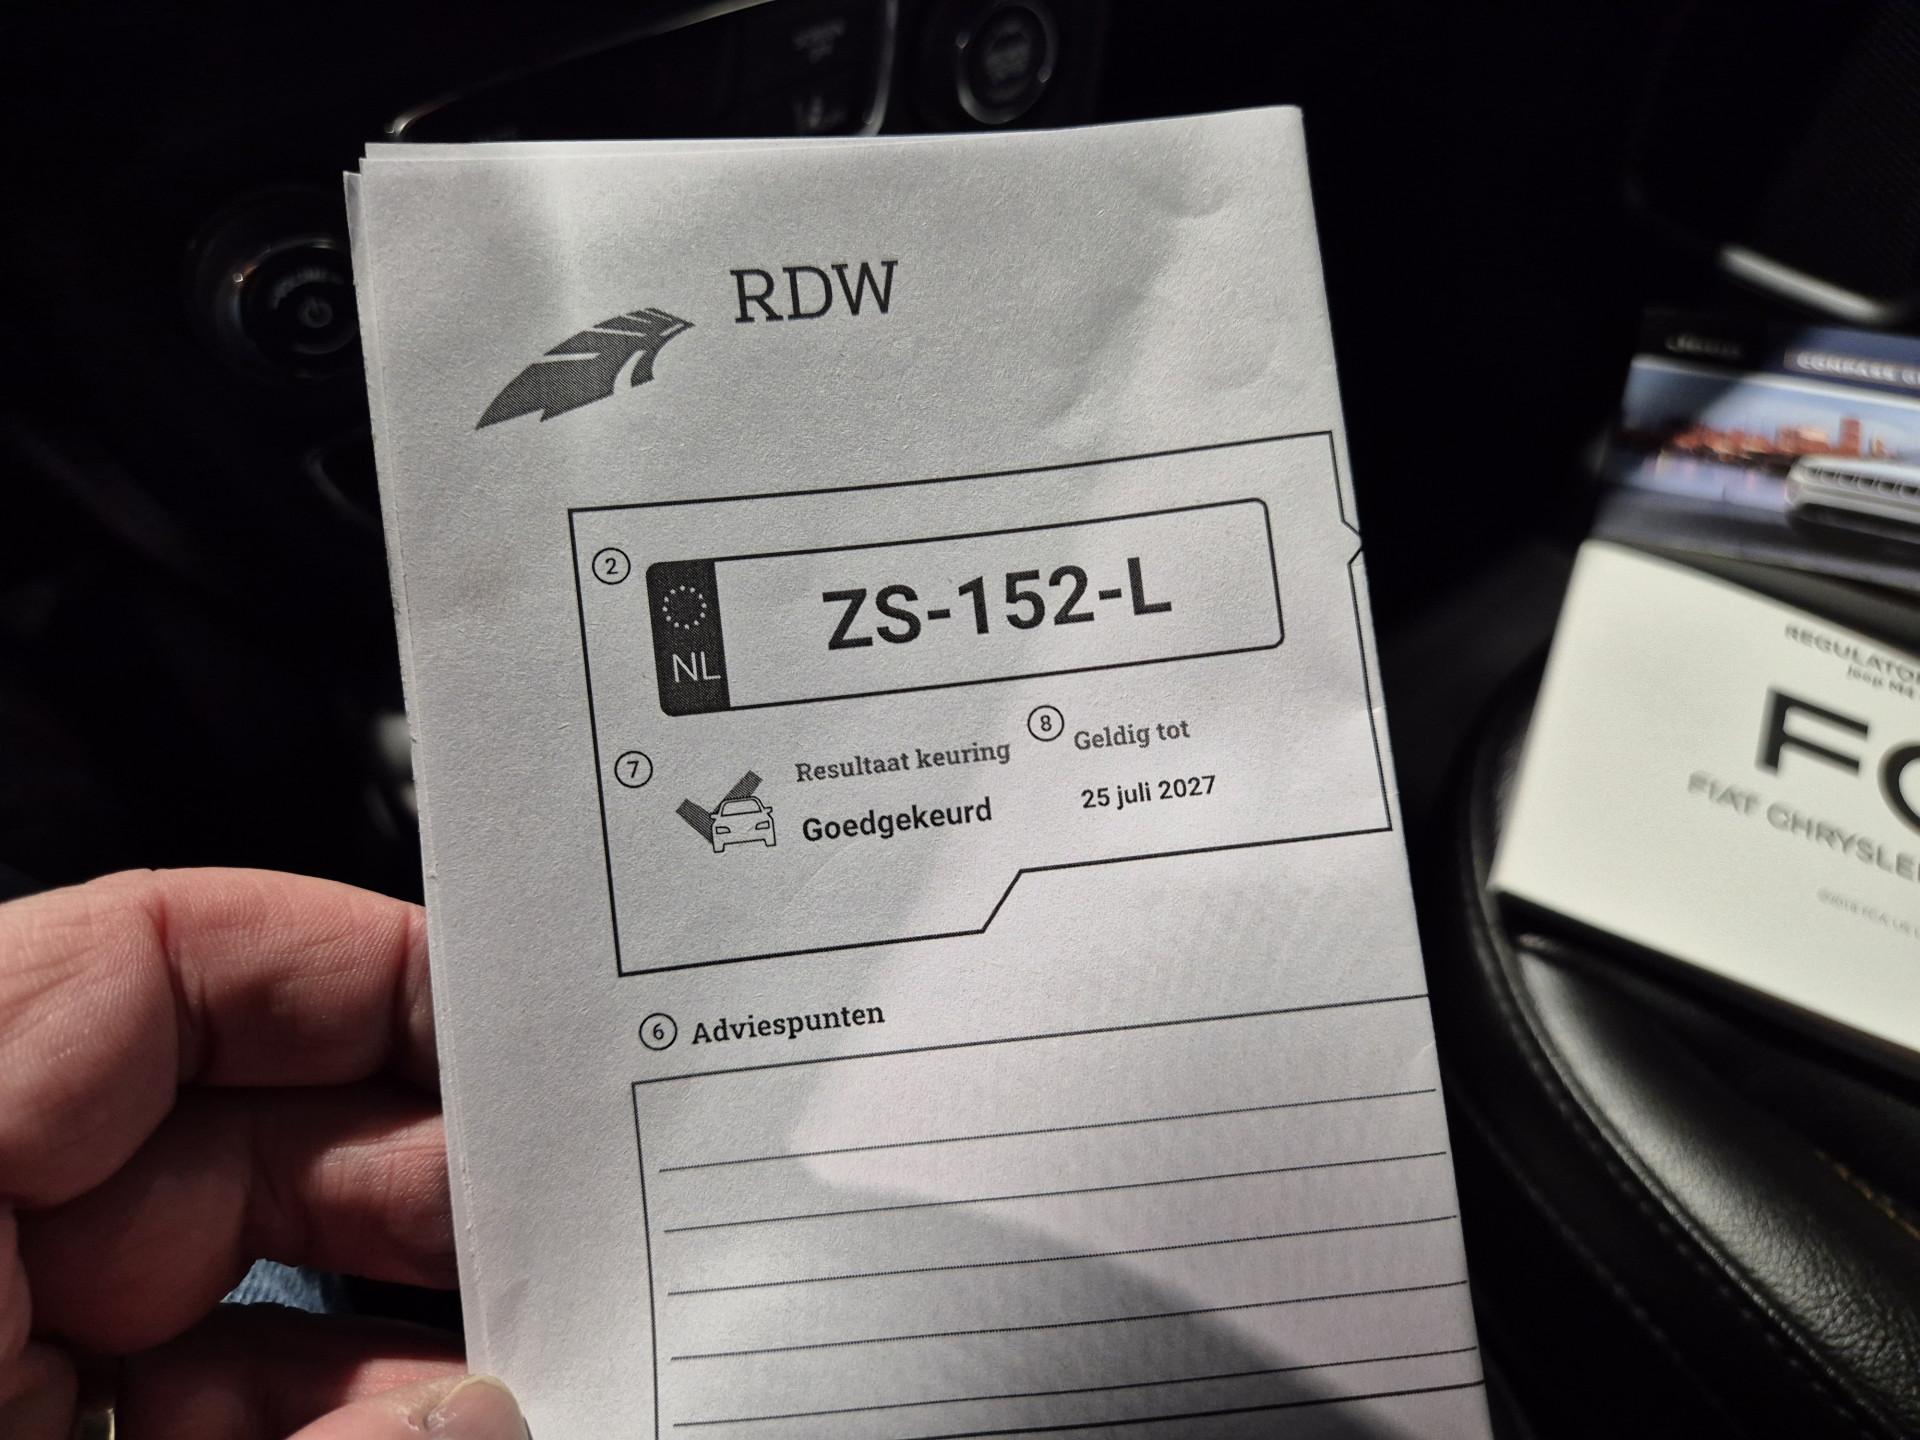 RDW
2
NL
ZS-152-L
7
Resultaat keuring
Goedgekeurd
8
Geldig tot
25 juli 2027
6 Adviespunten
FIAT CHRYSLE